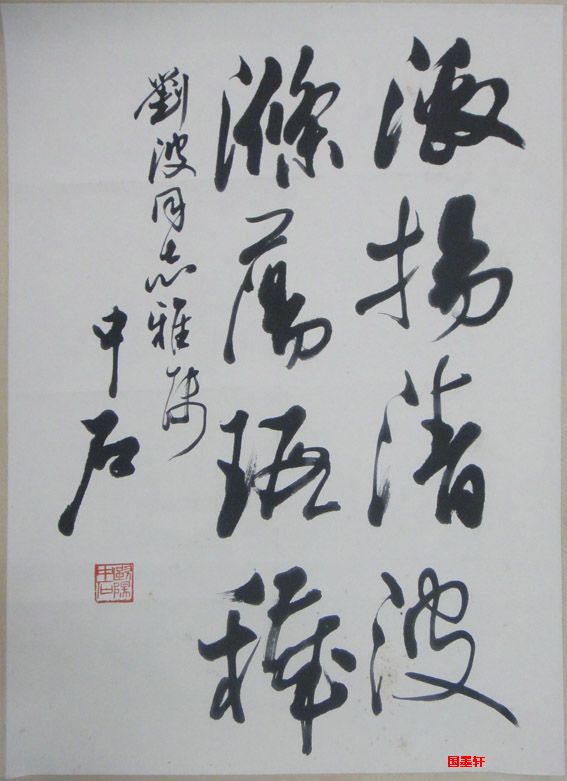 激揚清波
滌蕩瑕穢
劉波同志雅属
中石
歐陽中石
国墨轩